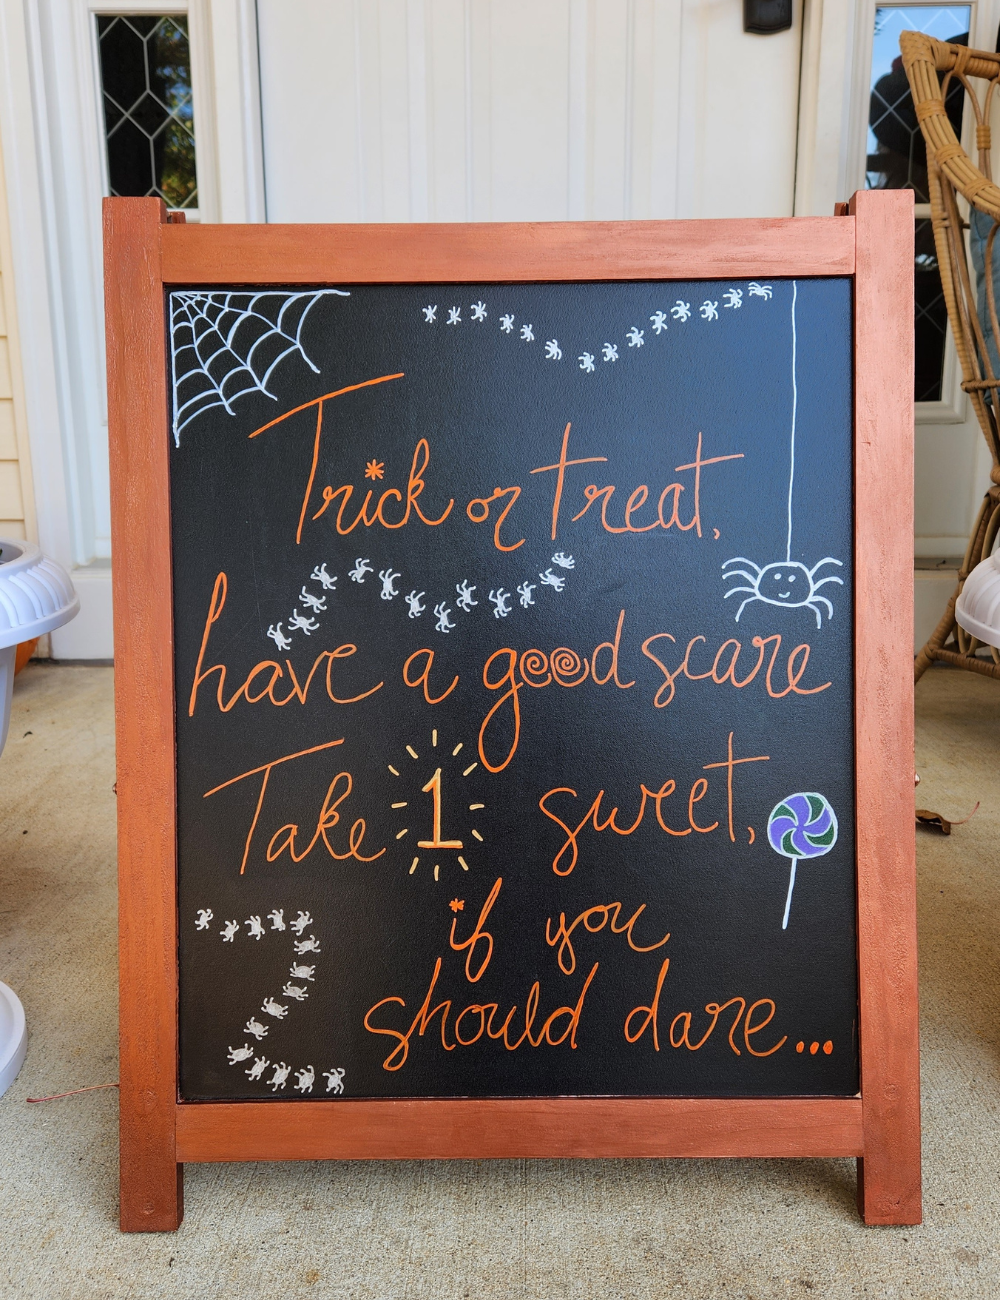 Trick or treat,
have a good scare
Take 1 sweet,
if you
should dare...